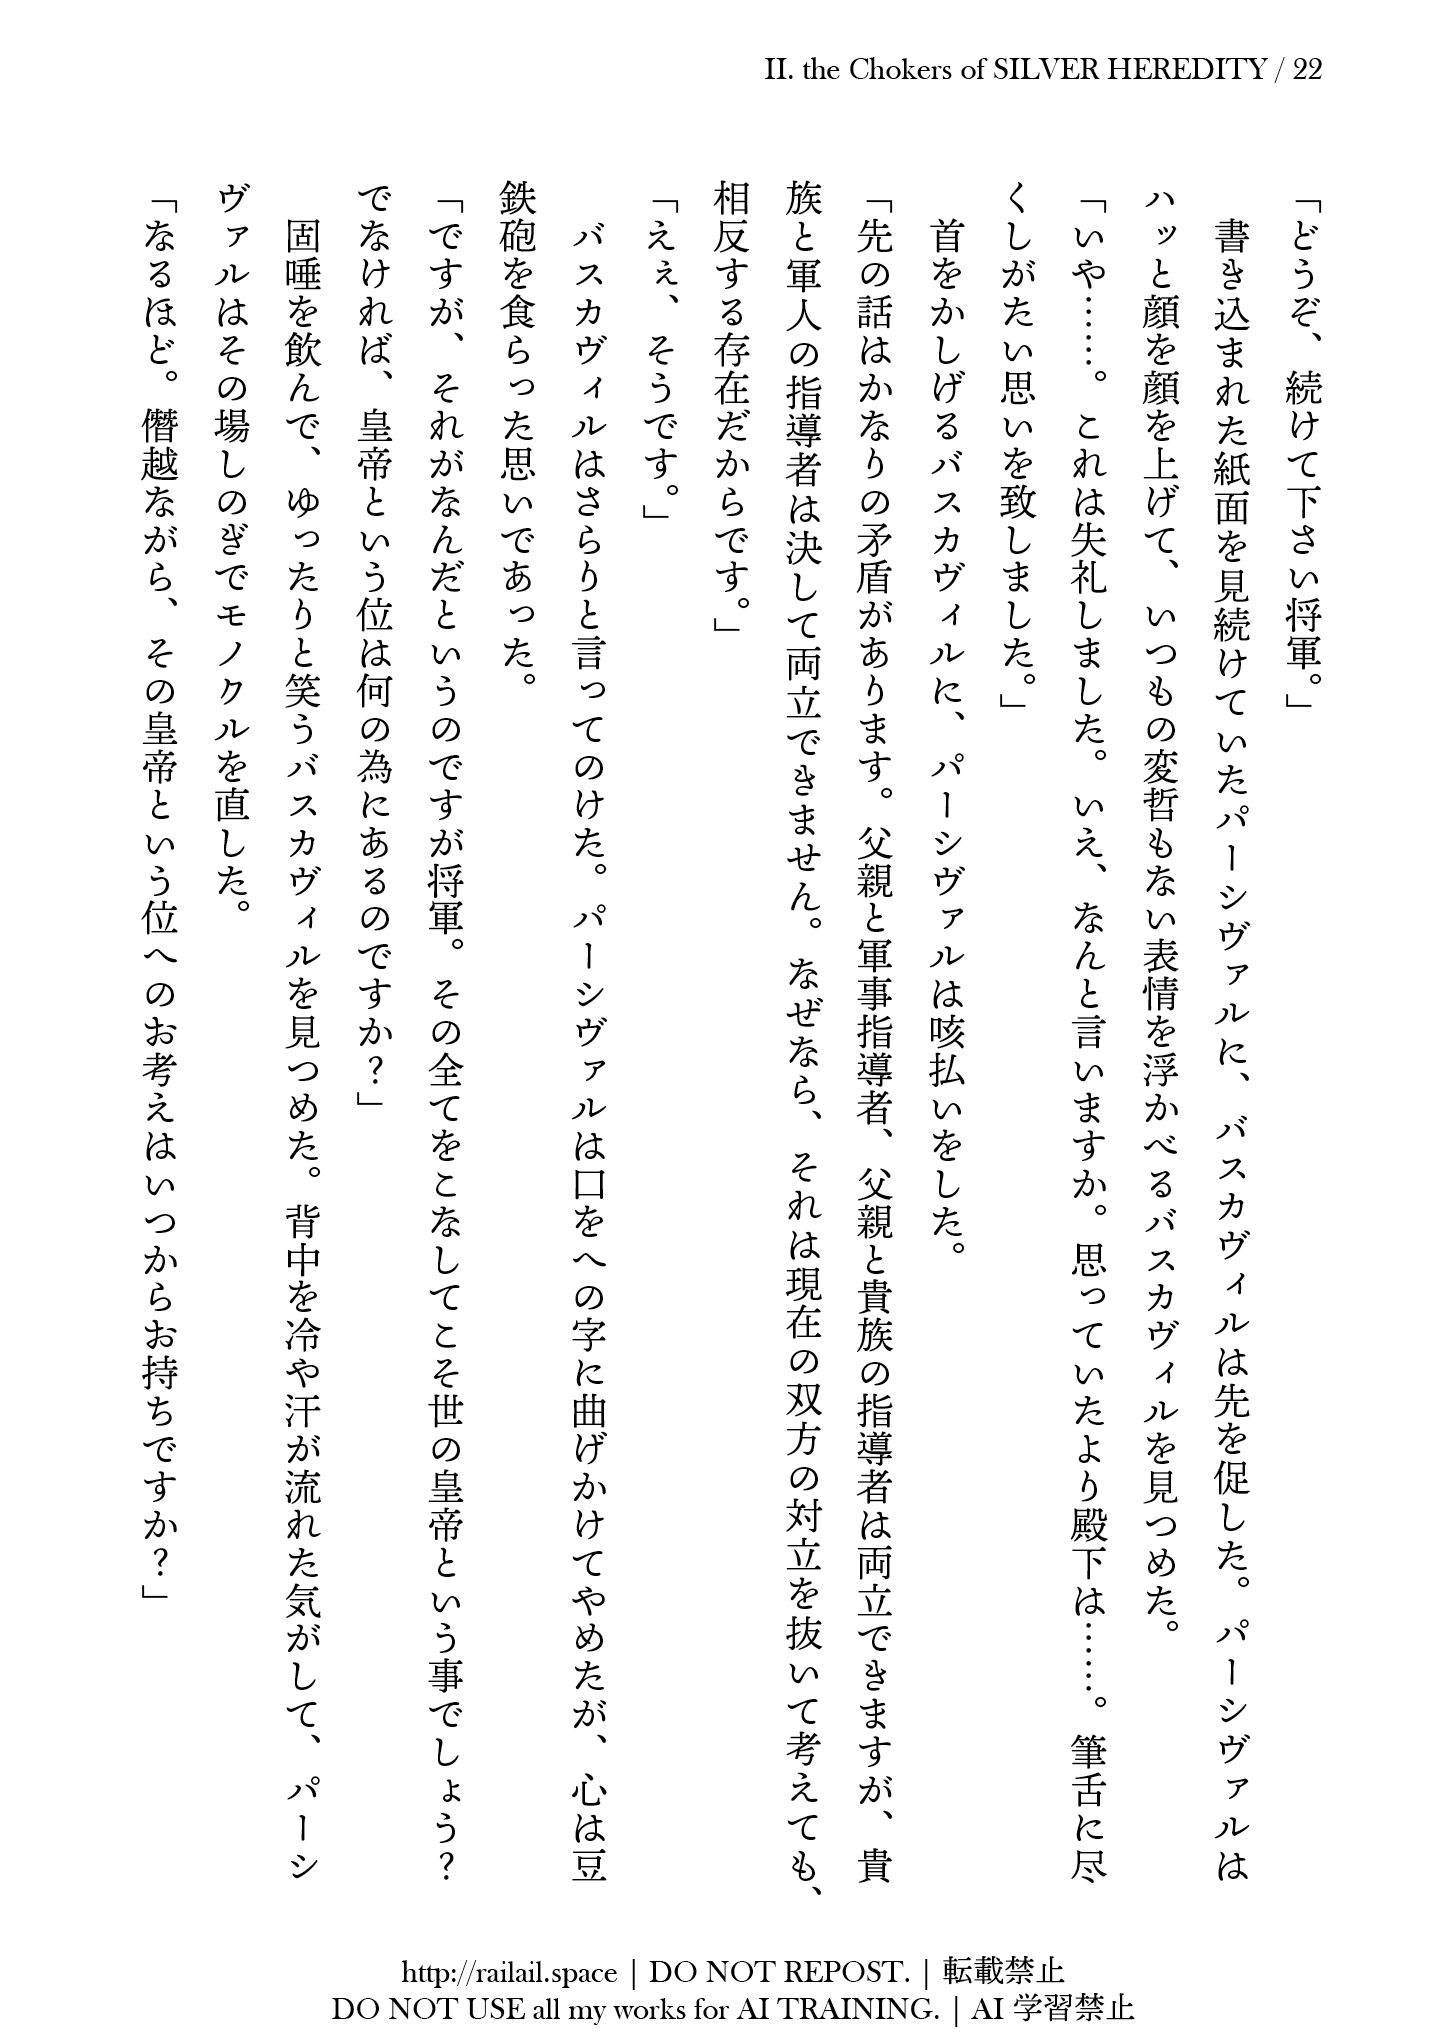 II. the Chokers of SILVER HEREDITY / 22
「どうぞ、続けて下さい将軍。」
　書き込まれた紙面を見続けていたパーシヴァルに、バスカヴィルは先を促した。パーシヴァルは
ハッと顔を顔を上げて、いつもの変哲もない表情を浮かべるバスカヴィルを見つめた。
「いや……。これは失礼しました。いえ、なんと言いますか。思っていたより殿下は……。筆舌に尽
くしがたい思いを致しました。」
　首をかしげるバスカヴィルに、パーシヴァルは咳払いをした。
「先の話はかなりの矛盾があります。父親と軍事指導者、父親と貴族の指導者は両立できますが、貴
族と軍人の指導者は決して両立できません。なぜなら、それは現在の双方の対立を抜いて考えても、
相反する存在だからです。」
「えぇ、そうです。」
　バスカヴィルはさらりと言ってのけた。パーシヴァルは口をへの字に曲げかけてやめたが、心は豆
鉄砲を食らった思いであった。
「ですが、それがなんだというのですが将軍。その全てをこなしてこそ世の皇帝という事でしょう？
でなければ、皇帝という位は何の為にあるのですか？」
　固唾を飲んで、ゆったりと笑うバスカヴィルを見つめた。背中を冷や汗が流れた気がして、パーシ
ヴァルはその場しのぎでモノクルを直した。
「なるほど。僭越ながら、その皇帝という位へのお考えはいつからお持ちですか？」
http://railail.space | DO NOT REPOST. | 転載禁止
DO NOT USE all my works for AI TRAINING. | AI 学習禁止